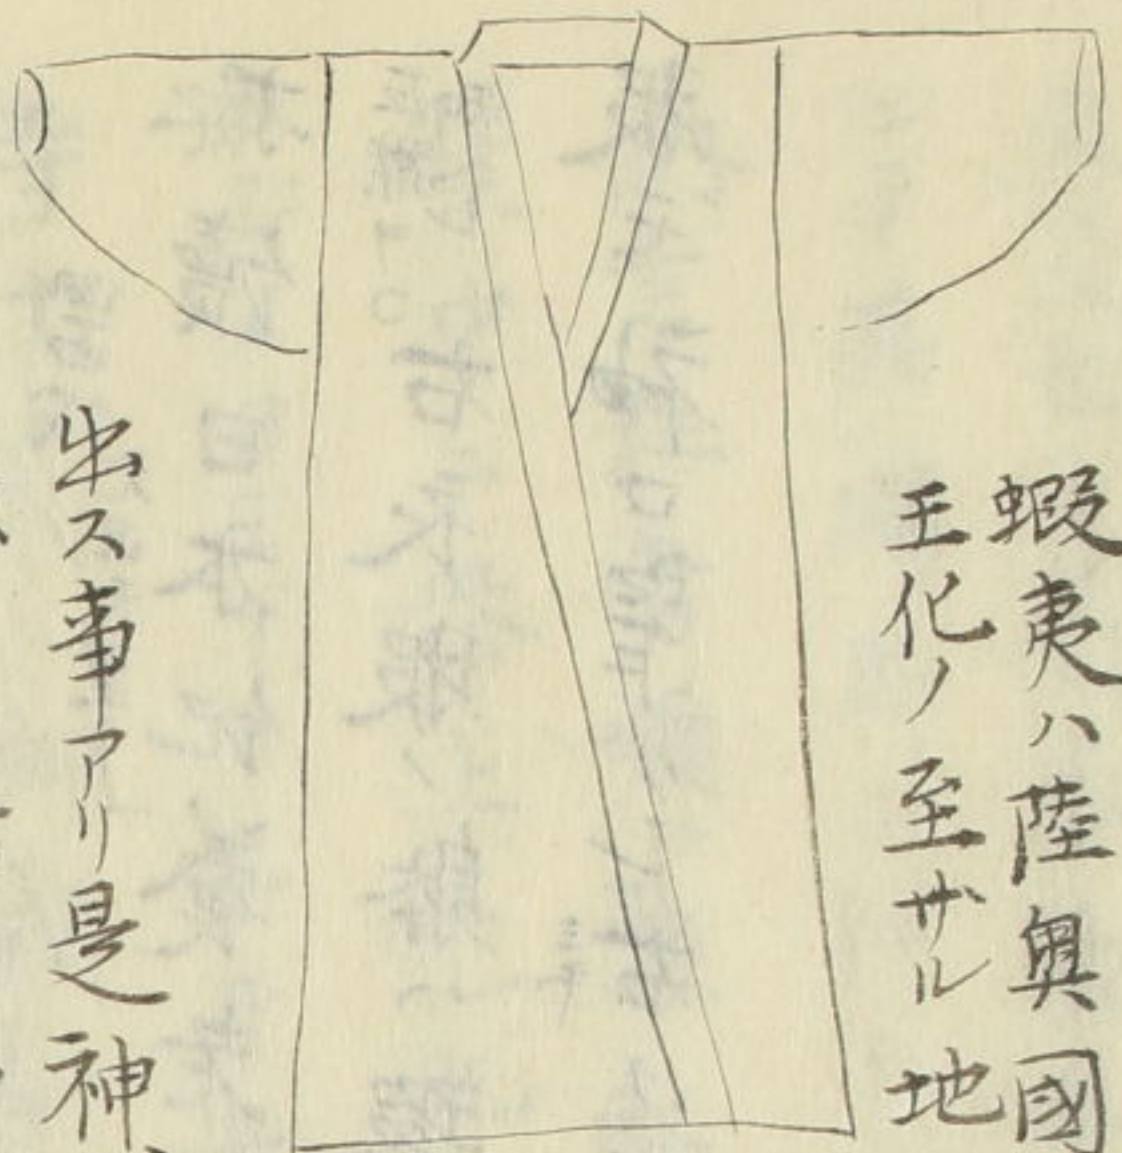 蝦夷ハ陸奥國
王化ノ至ザル地
出ス事アリ是神